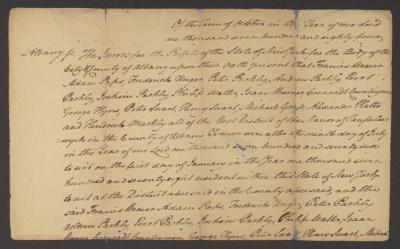 Of the Term of October in the Year of our Lord
one thousand seven hundred and eighty four
Albany ss. The Jurors for the People of the State of New York for the Body of the
City & County of Albany upon their oath present that Francis
Adam Paps, Frederick Unger, Peter Peckly, Andrew Peckly, Evert
Peckly, Jochim Peckly, Philip Walter, Isaac Countryman
George Hyns, Peter Snart, Henry Snart, Michael Alexander Platto
and Hendrick all of the West District of the Manor of Rensselaer
wyck in the County of Albany after the ninth day of July
in the Year of our Lord one thousand seven hundred and seventy six
to wit on the first day of January in the Year one thousand seven
hundred and seventy eight resident within this State of New York
to wit at the District aforesaid in the County aforesaid, and the
said Francis Adam Papps, Frederick Unger, Peter Peckly
Andrew Peckly, Evert Peckly, Jochim Peckly, Philip Walter, Isaac
Countryman George Hyns, Peter Henry Snart, Michael